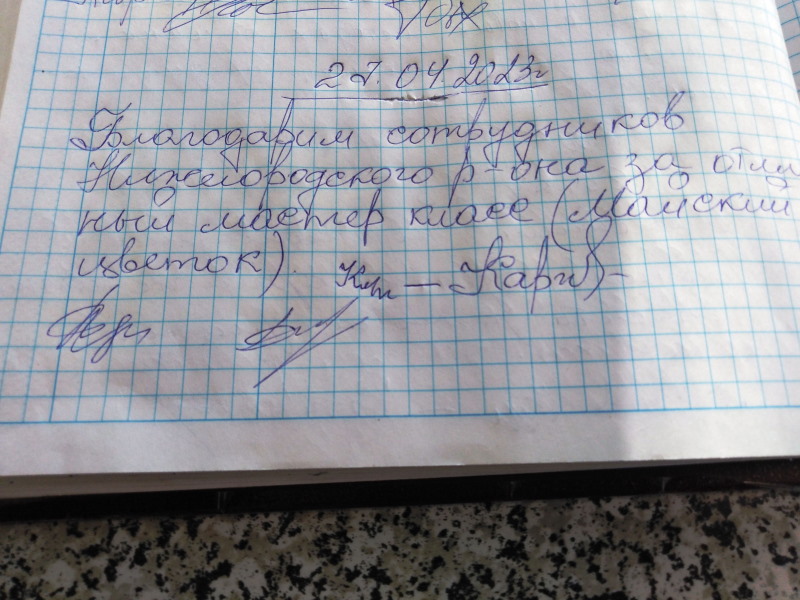 27.04 2023г
Благодарим сотрудников
Нижегородского р-она за отли
ный мастер класс (Майский
цветок).